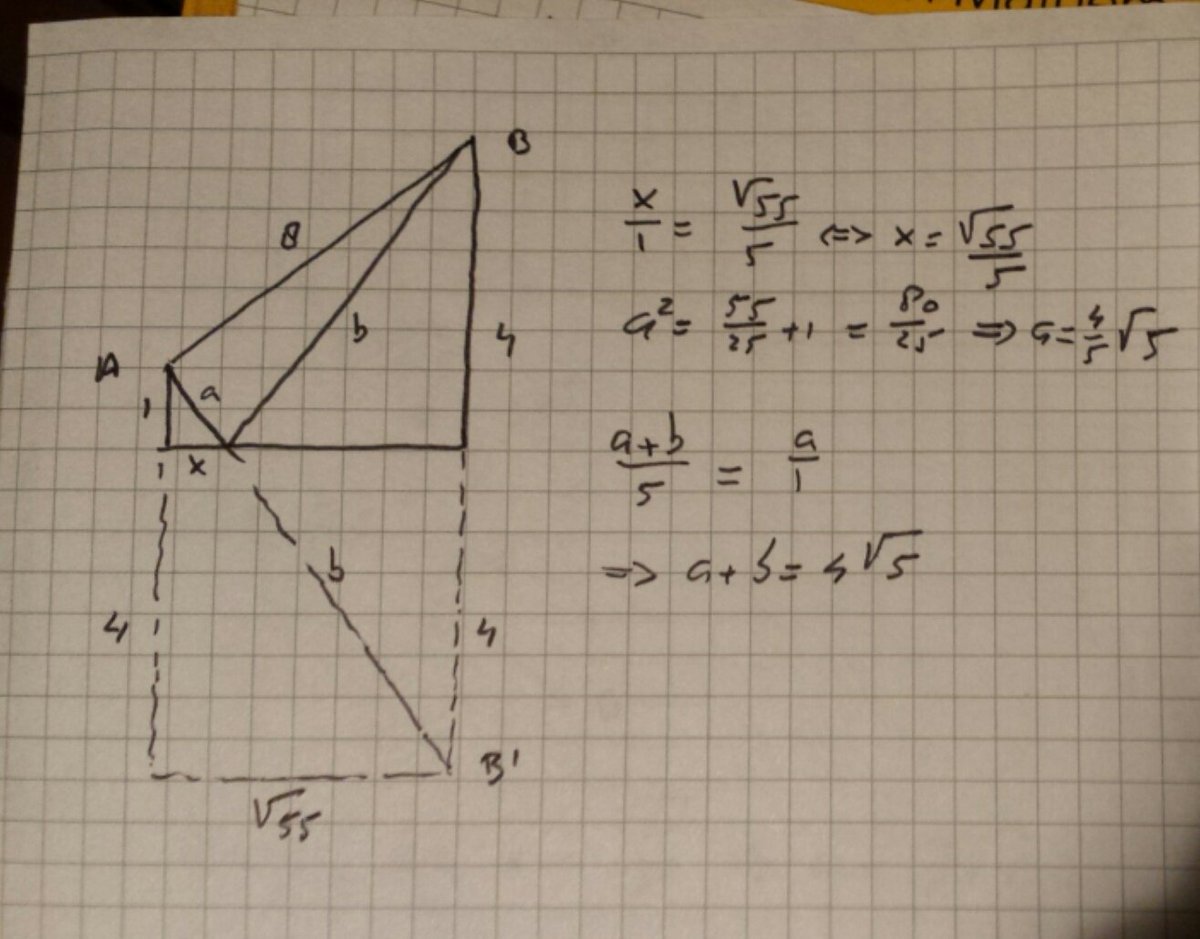 B
8
b
4
A
a
1
x
b
4
4
B'
√55
x/1 = √55/5 <=> x = √55/5
a² = 55/25 + 1 = 80/25 => a = 4/5 √5
a+b/5 = a/1
=> a+b = 4√5